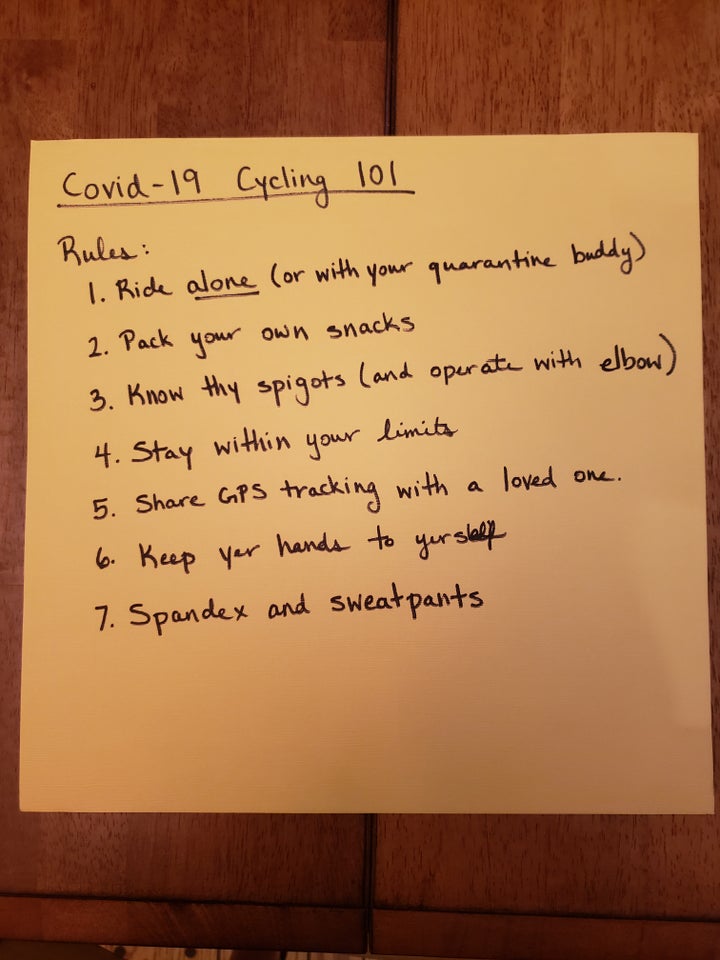 Covid-19 Cycling 101
Rules:
1. Ride alone (or with your quarantine buddy)
2. Pack your own snacks
3. Know thy spigots (and operate with elbow)
4. Stay within your limits
5. Share GPS tracking with a loved one.
6. Keep yer hands to yerself
7. Spandex and sweatpants